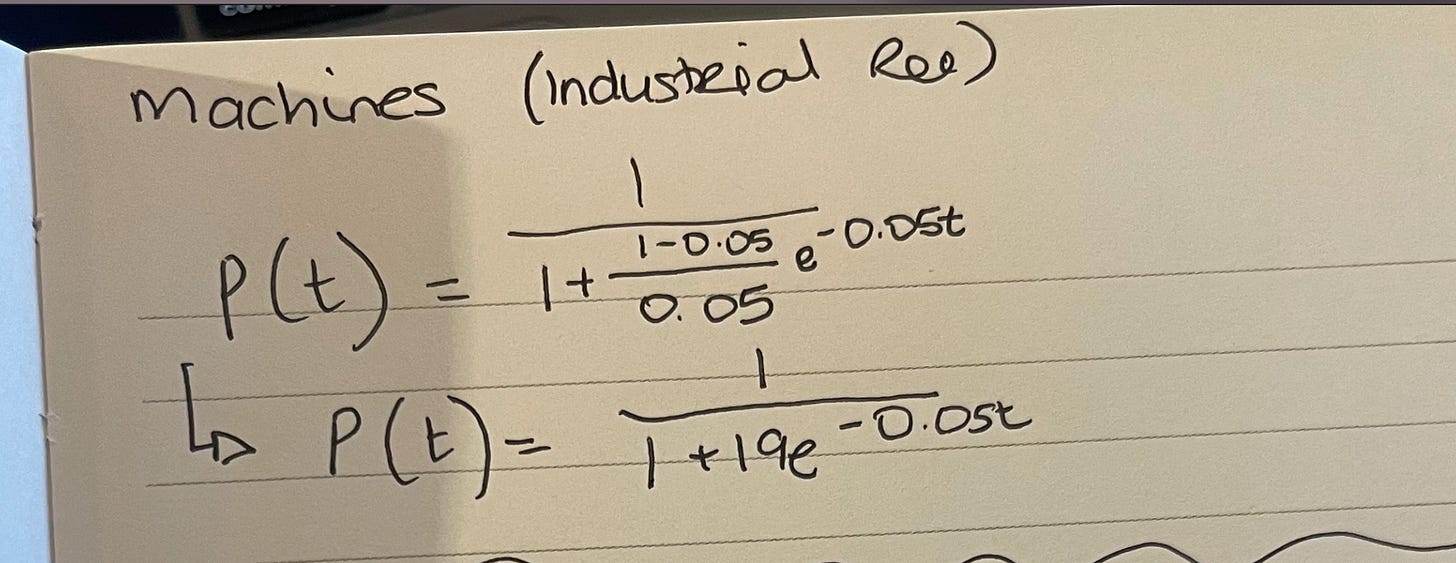 Machines (Industrial Rev)
P(t) = 1 / (1 + (1-0.05)/0.05 e^-0.05t)
↳ P(t) = 1 / (1 + 19e^-0.05t)